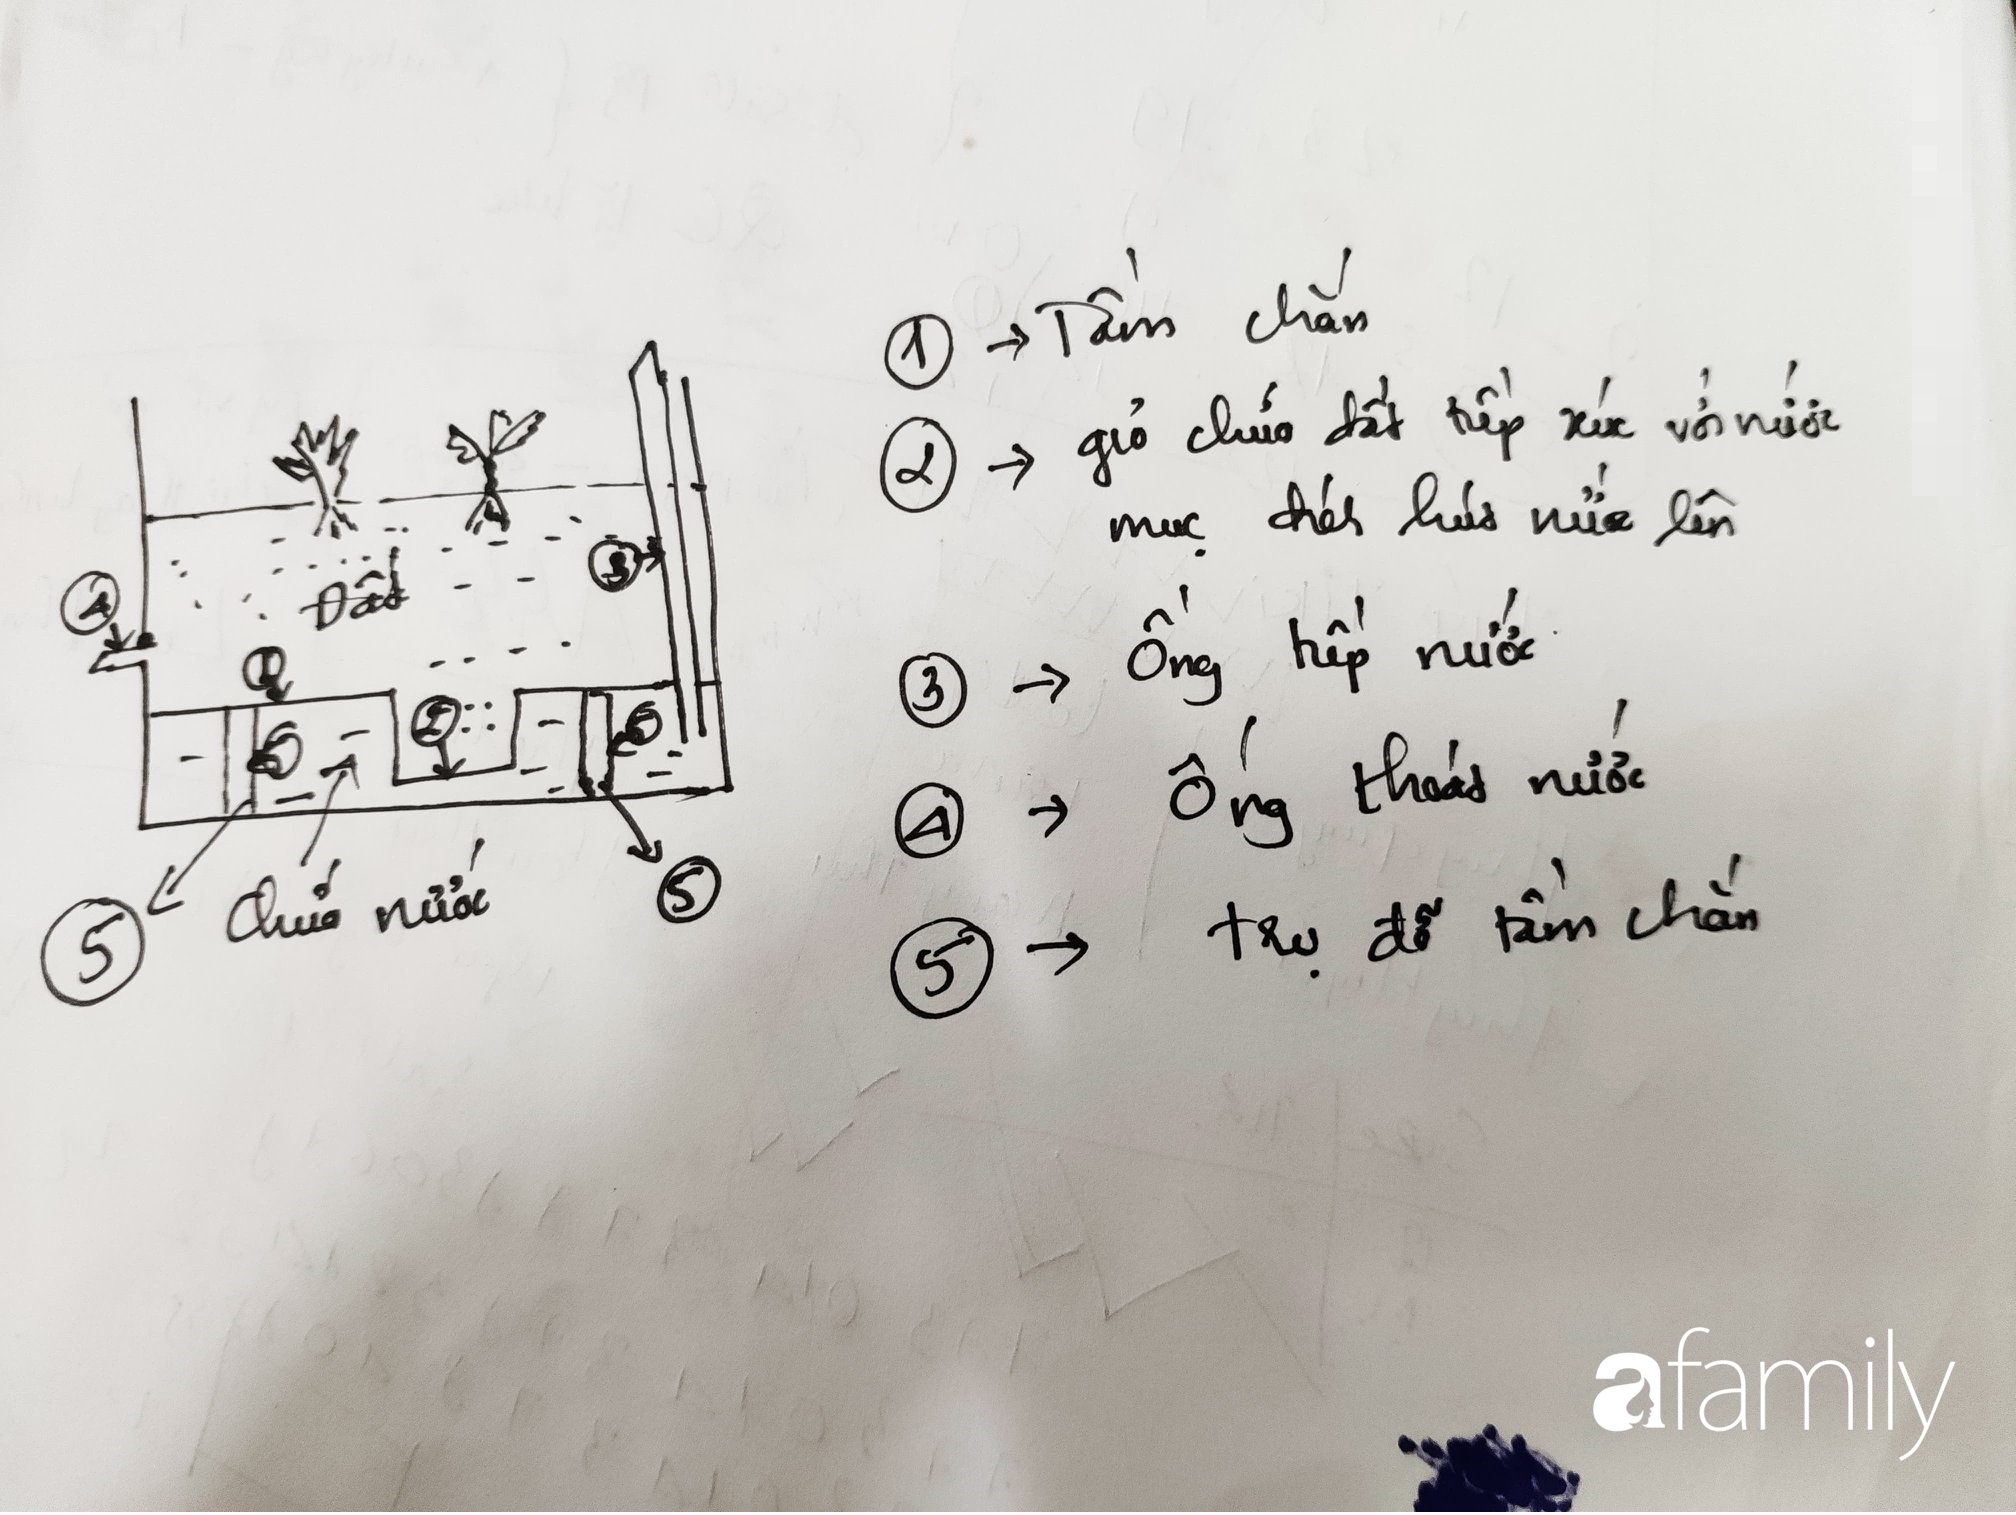 Đất
Chứa nước
① → Tấm chắn
② → giỏ chứa đất tiếp xúc với nước
mục đích hút nước lên
③ → Ống tiếp nước
④ → Ống thoát nước
⑤ → trụ đỡ tấm chắn
④
③
①
②
⑤
⑤
⑤
⑤
afamily